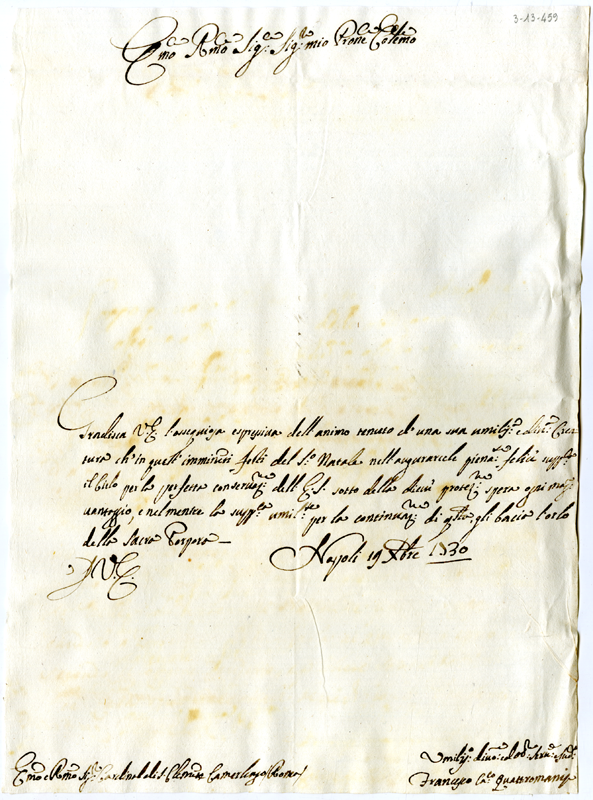 3-13-459
Em.o Rm.o Sig.e Sig.e mio Prone Colmo
Gradisca V.E. l'ossequiosa espressiva dell'animo tenuto d'una sua umiliss.a e div.ma Crea
tura ch'in questi imminenti festi del S.o Natale nell'augurarcele piena.te felici supp.ca
il Cielo per la perfetta conservaz.ne dell'E.S. sotto della di cui protez.ne spera ogni mag.r
vantaggio, e nel mentre la supp.ca umil.te per la continuaz.ne di q.sta gli bacia l'orlo
della Sacra Porpora—
Napoli 19 Xbre 1730
V.E.
Em.o e Rm.o Sig.e Cardinal di S. Clemente Camerlengo (Roma)
Umiliss.o divo.mo ed obb.mo serv.e
Francesco Quattromani